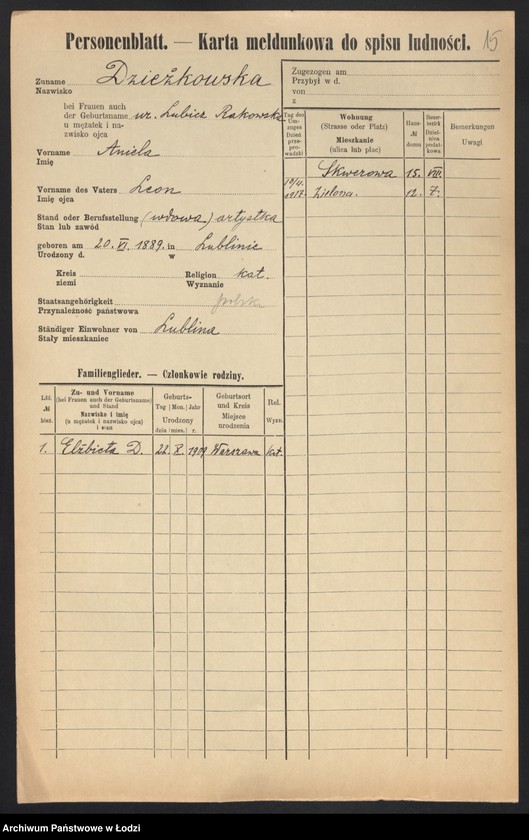 15
Personenblatt. — Karta meldunkowa do spisu ludności.
Zuname Dzieżkowska
Nazwisko
bei Frauen auch
der Geburtsname ur. Lubicz Rakowska
u mężatek i na-
zwisko ojca
Vorname Aniela
Imię
Vorname des Vaters Leon
Imię ojca
Stand oder Berufsstellung (wdowa) artystka
Stan lub zawód
geboren am 20. VI. 1889. in Lublinie
Urodzony d. w
Kreis Religion kat.
ziemi Wyznanie
Staatsangehörigkeit polsk.
Przynależność państwowa
Ständiger Einwohner von Lublina
Stały mieszkaniec
Familienglieder. — Członkowie rodziny.
Lfd. № bież.
Zu- und Vorname
(bei Frauen auch der Geburtsname)
und Stand
Nazwisko i imię
(u mężatek i nazwisko ojca)
i stan
Geburts-
Tag | Mon. | Jahr
Urodzony
dnia | mies. | r.
Geburtsort
und Kreis
Miejsce
urodzenia
Rel.
Wyzn.
1. Elżbieta D. 22. X. 1909 Warszawa kat.
Zugezogen am
Przybył w d.
von
z
Tag des
Um-
zuges
Dzień
prze-
prowadzki
Wohnung
(Strasse oder Platz)
Mieszkanie
(ulica lub plac)
Haus-
№
domu
Bemerkungen
Uwagi
Skwerowa 15. VIII.
1917 Zielona. 12. 7.
Archiwum Państwowe w Łodzi